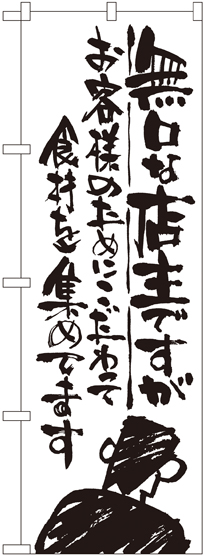 無口な店主ですが
お客様のためにこだわって
食材を集めてます